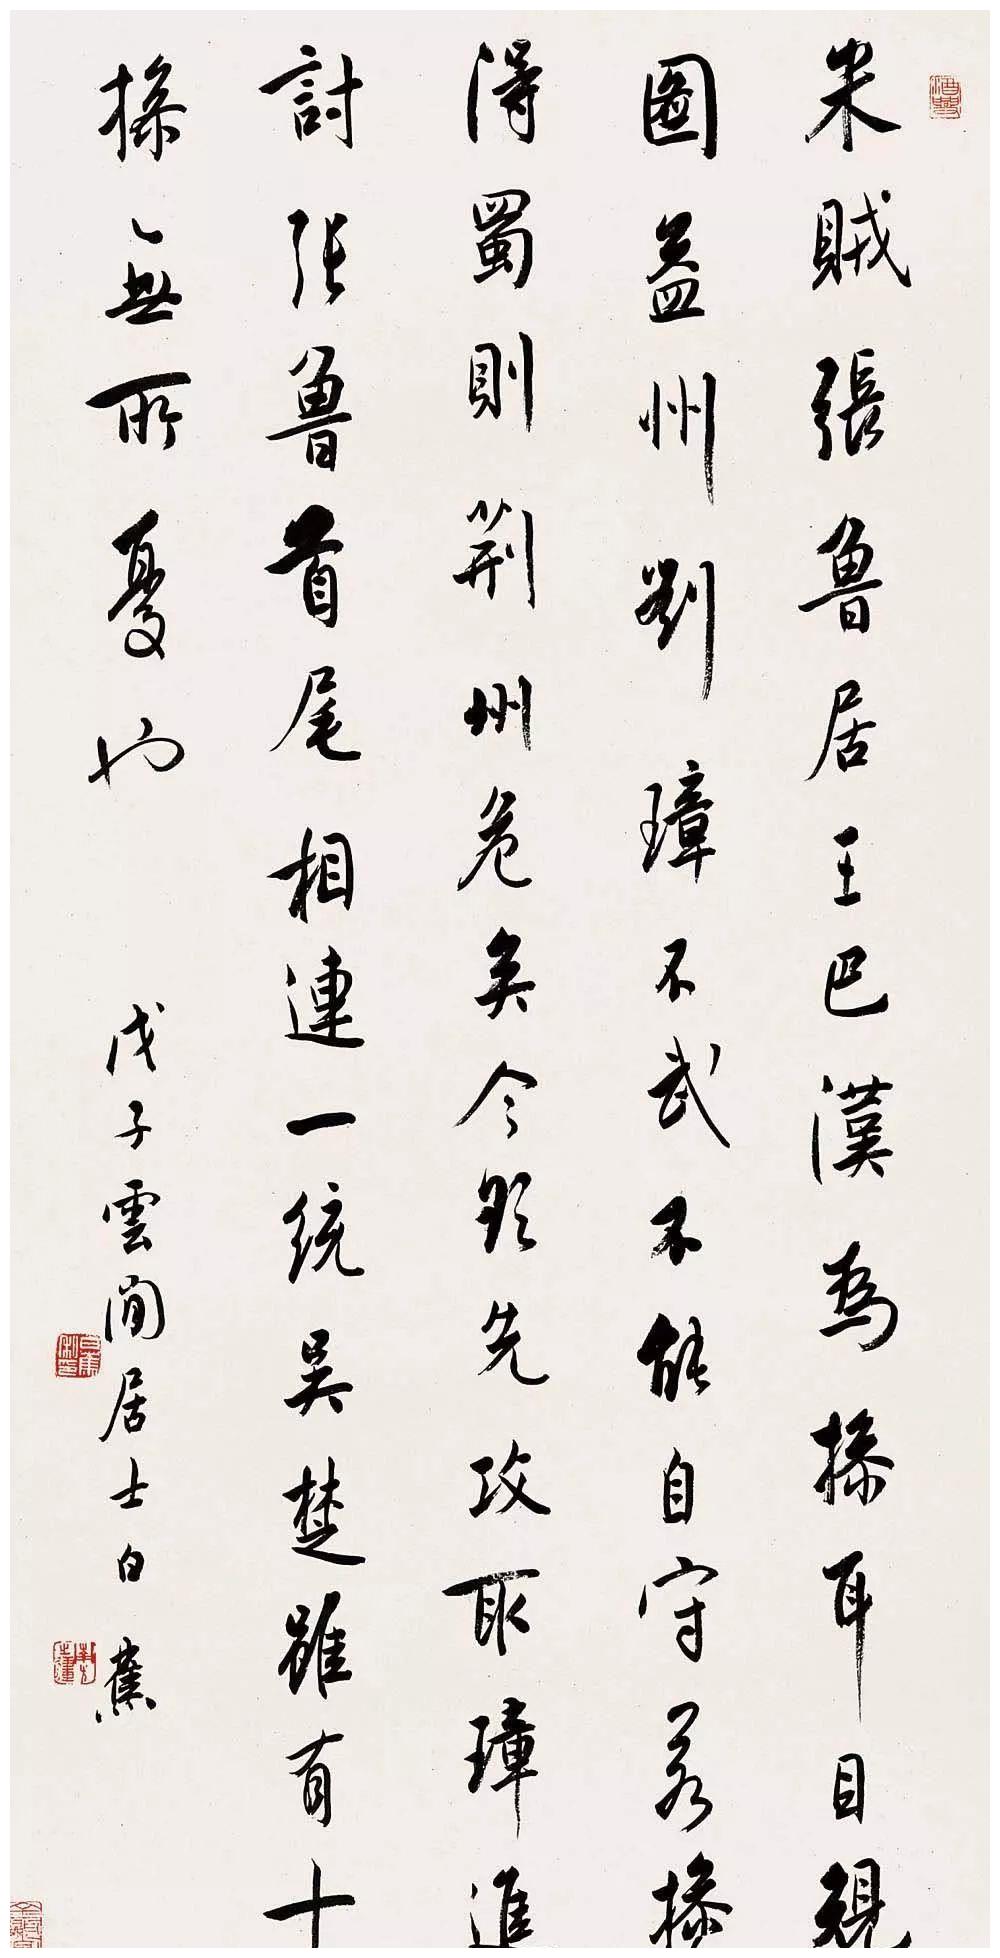 米賊張魯居王巴漢為操耳目規
圖益州劉璋不武不能自守若操
得蜀則荆州危矣今欲先攻取璋進
討張魯首尾相連一統吳楚雖有十
操無所憂也
戊子雲間居士白蕉